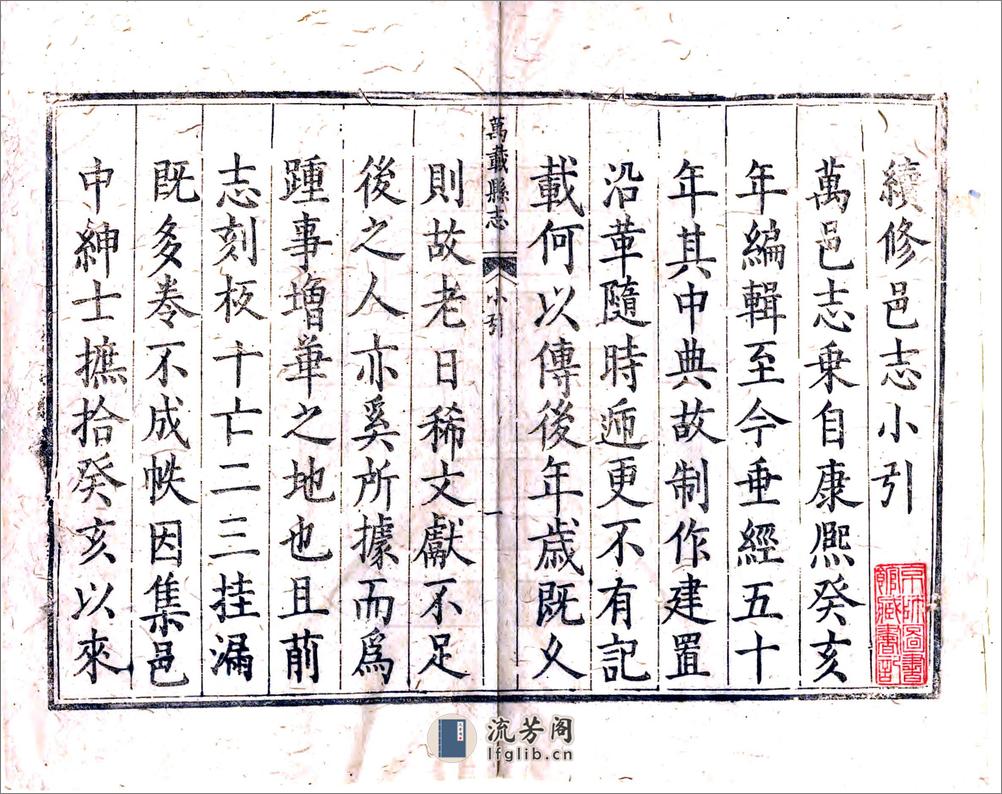 續修邑志小引
萬邑志乗自康熙癸亥
年編輯至今垂經五十
年其中典故制作建置
沿革隨時遞更不有記
載何以傳後年歲既久
萬載縣志 小引 一
則故老日稀文獻不足
後之人亦奚所據而爲
踵事增華之地也且前
志刻板十亡二三挂漏
既多卷不成帙因集邑
中紳士摭拾癸亥以來
流芳阁
lfglib.cn